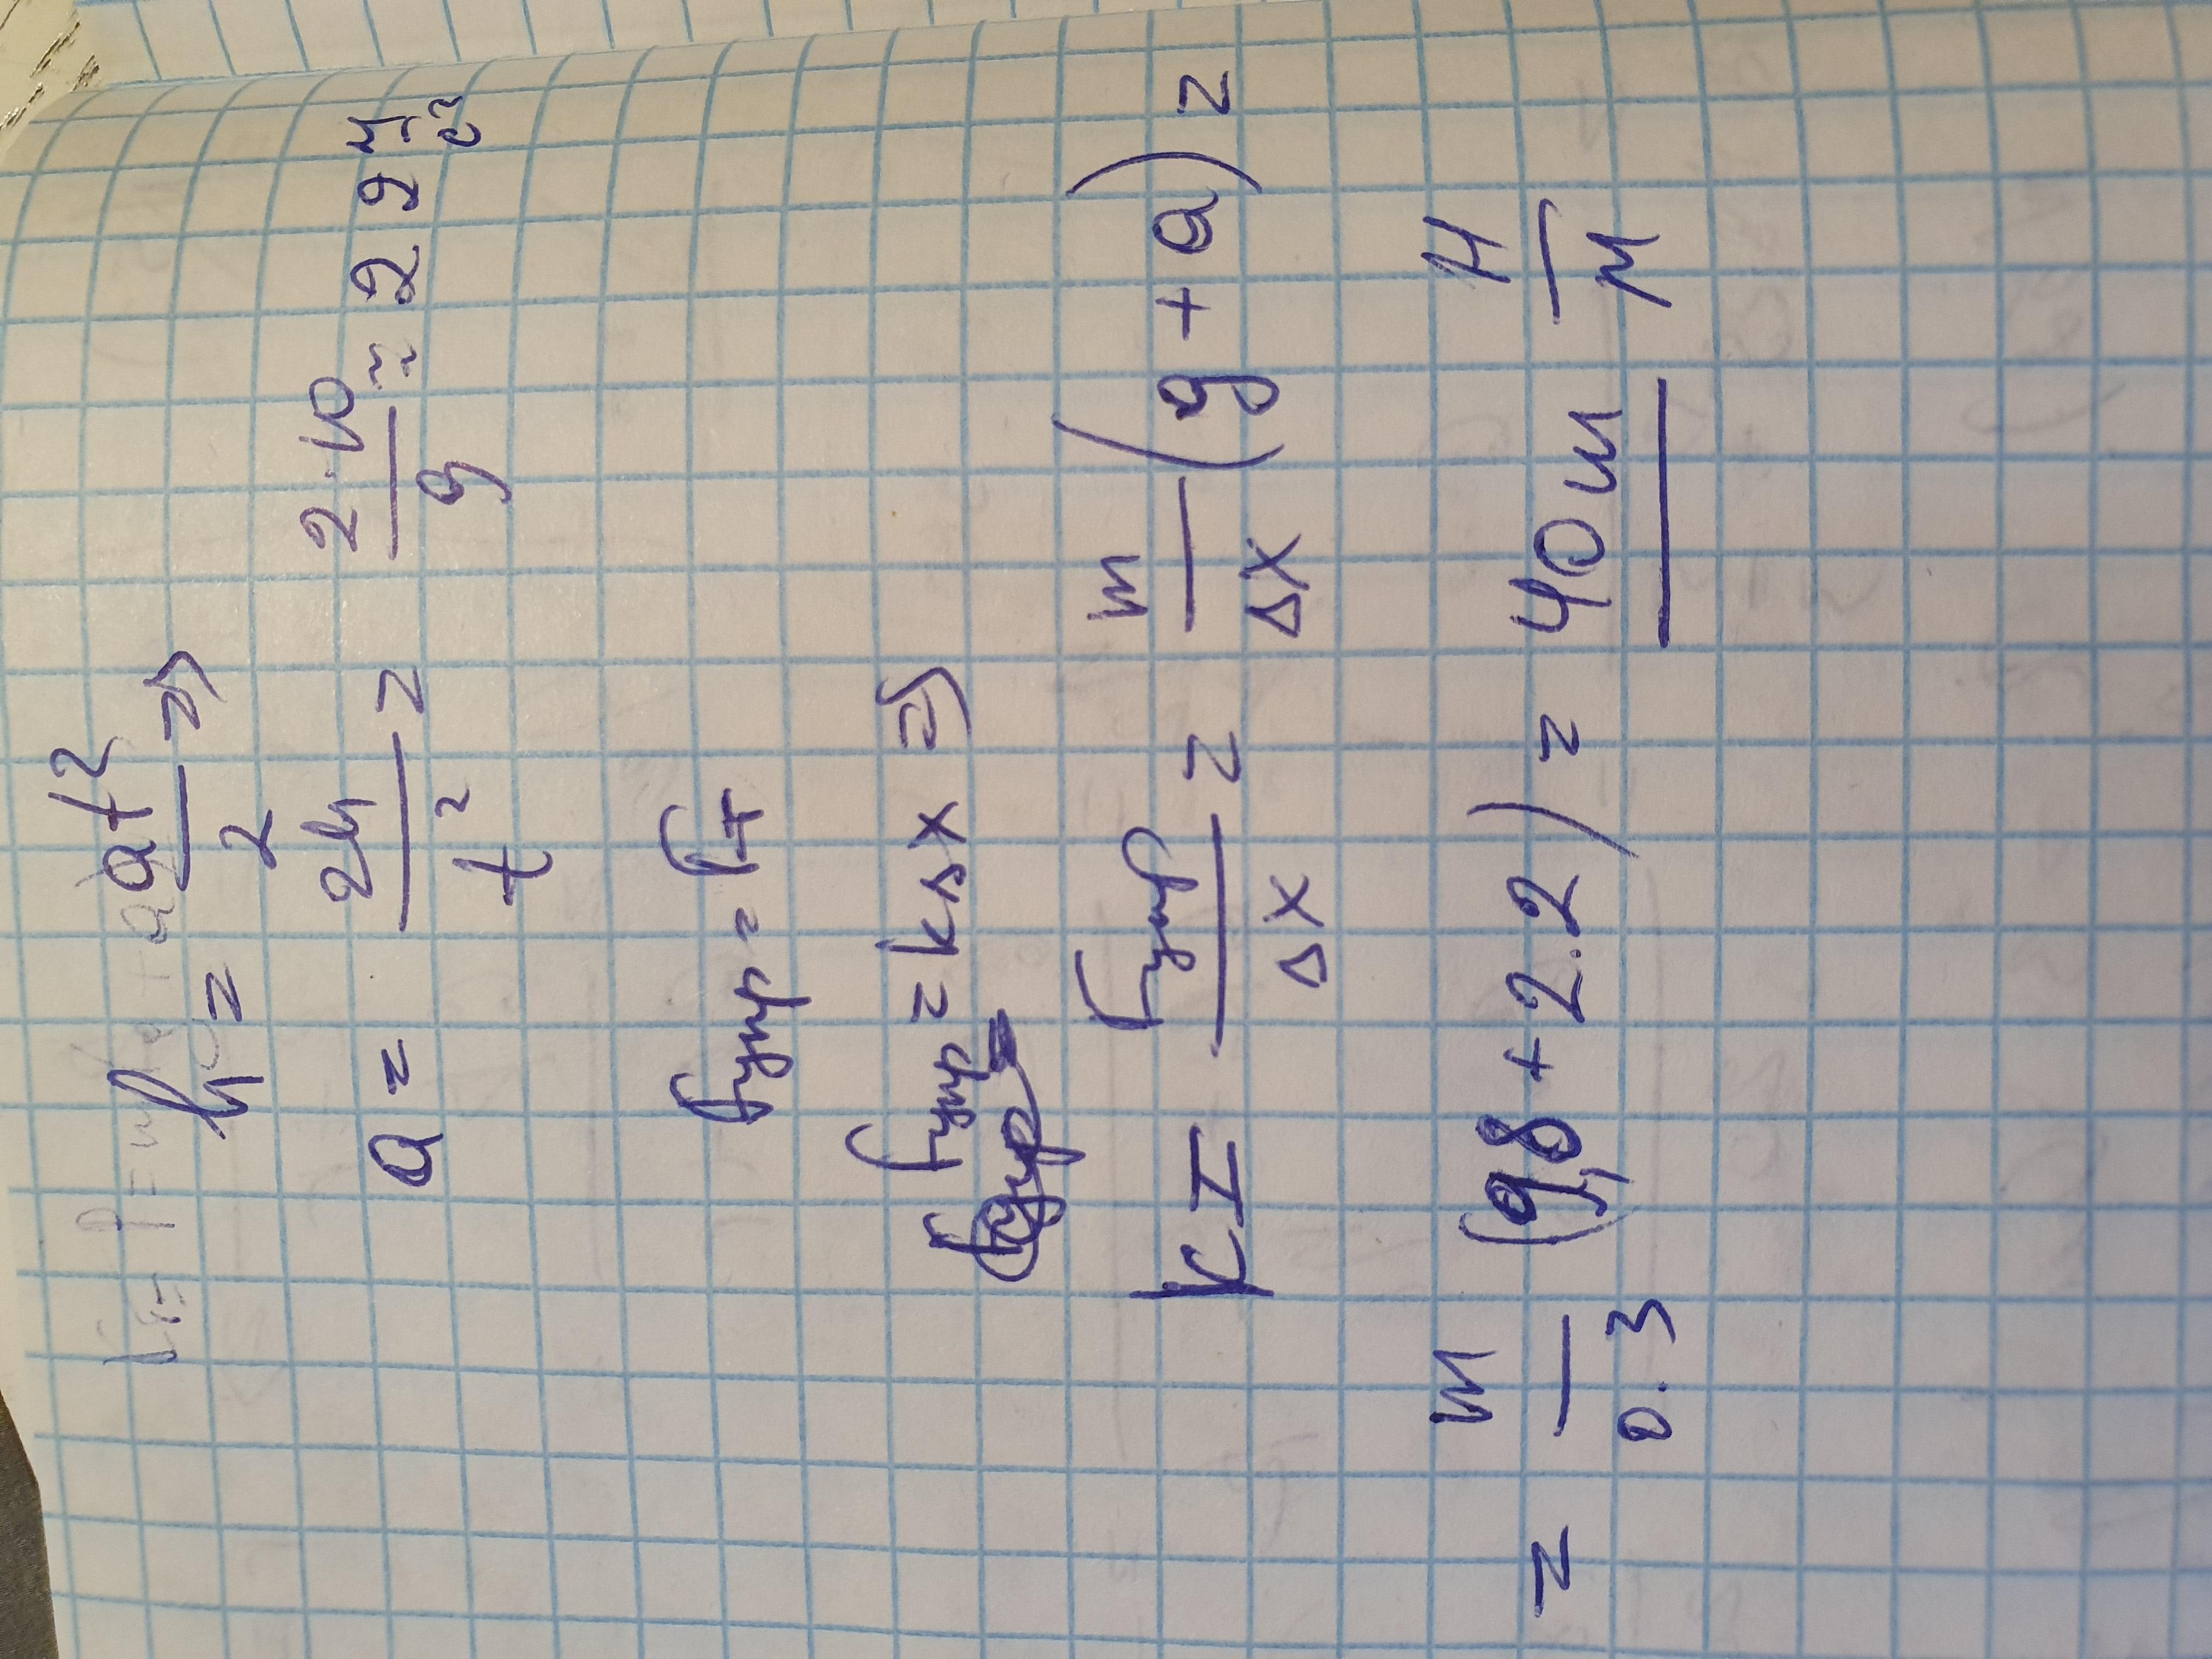 h = at²/2 =>
a = 2h/t² = 2·10/9 ≈ 2 2 м/с²
Fупр = Fт
Fупр = kΔx =>
k = Fупр/Δx = m/Δx (g + a) =
= m/0.3 (9,8 + 2.2) = 40m Н/м